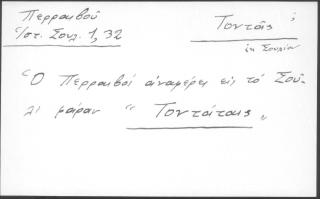 Περραιβοῦ
Ἱστ. Σουλ. 1, 32
Τοντάτης
ἐκ Σουλίου
Ὁ Περραιβός ἀναφέρει εἰς τό Σού-
λι φάραν "Τοντάταις"